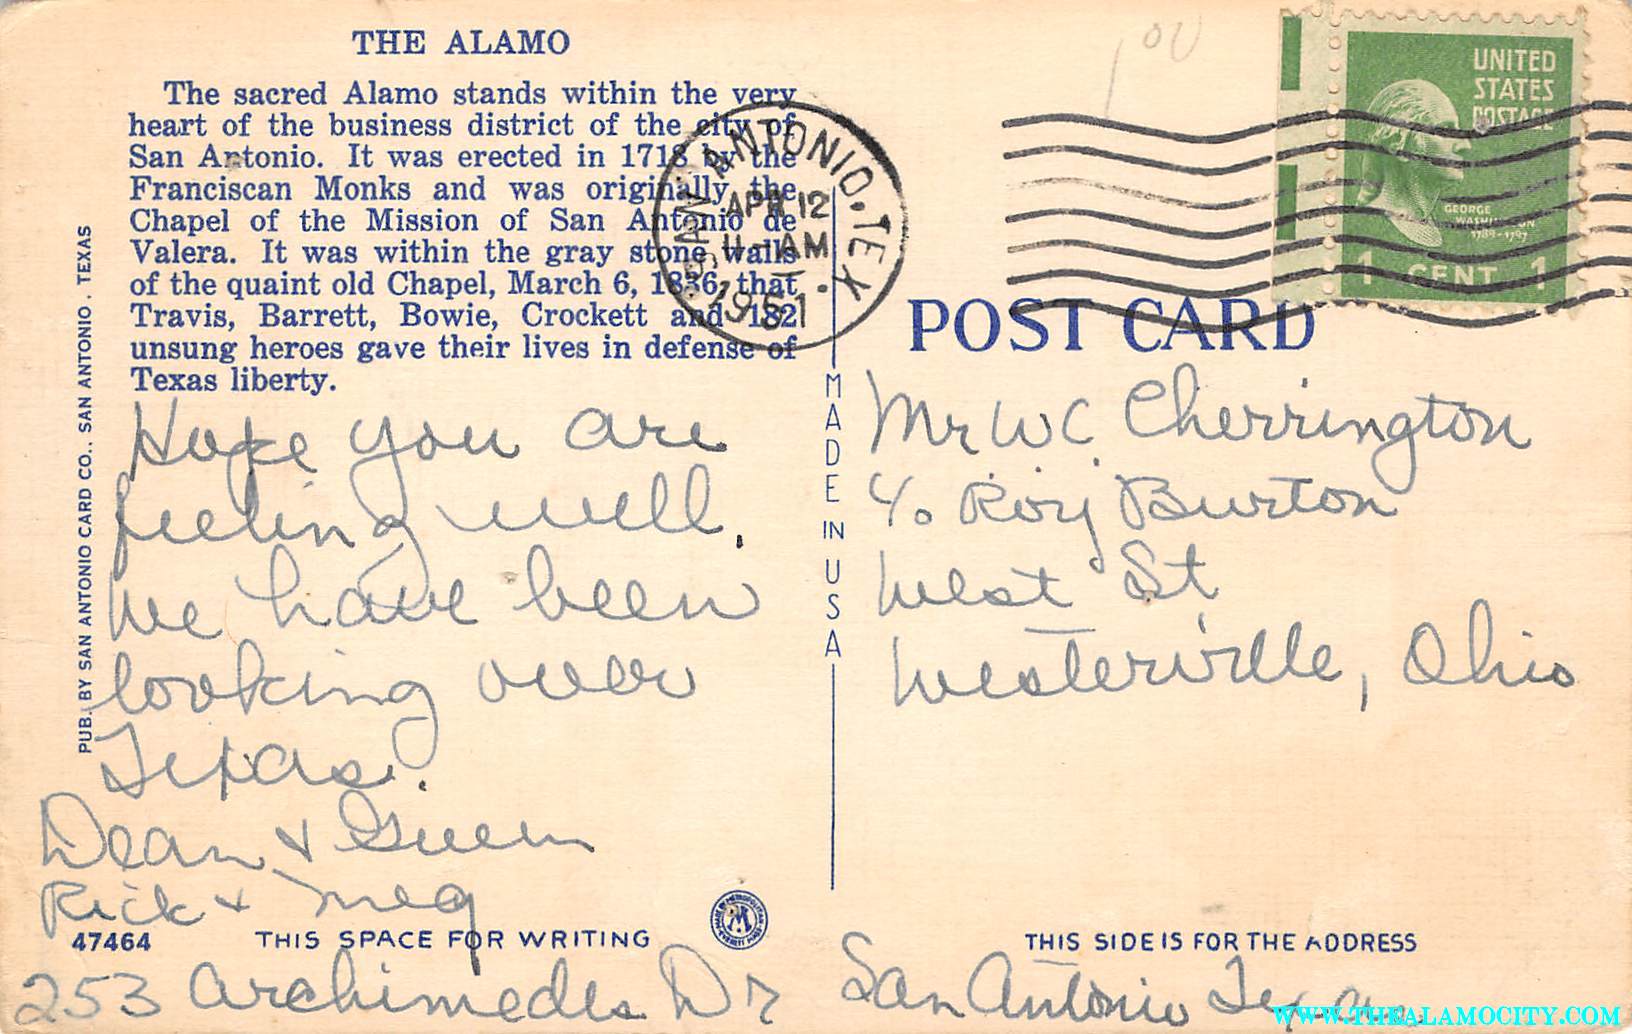 THE ALAMO
The sacred Alamo stands within the very
heart of the business district of the city of
San Antonio. It was erected in 1718 by the
Franciscan Monks and was originally the
Chapel of the Mission of San Antonio de
Valera. It was within the gray stone walls
of the quaint old Chapel, March 6, 1836, that
Travis, Barrett, Bowie, Crockett and 182
unsung heroes gave their lives in defense of
Texas liberty.
Hope you are
feeling well.
We have been
looking over
Texas.
Dean & Gwen
Rick & Meg
47464
THIS SPACE FOR WRITING
253 Archimedes Dr San Antonio Texas
PUB. BY SAN ANTONIO CARD CO., SAN ANTONIO, TEXAS
MADE IN USA
SAN ANTONIO, TEX.
APR 12
11-AM
1951
100
UNITED
STATES
POSTAGE
GEORGE
WASHINGTON
1789-1797
1 CENT 1
POST CARD
Mr W C Cherrington
c/o Roy Burton
West St
Westerville, Ohio
THIS SIDE IS FOR THE ADDRESS
WWW.THEALAMOCITY.COM